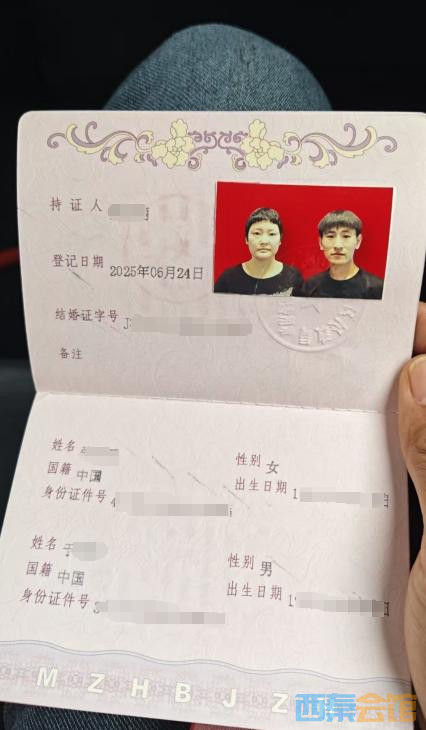 持证人
登记日期 2025年06月24日
结婚证字号 J
备注
姓名 性别 女
国籍 中国 出生日期 1
身份证件号 4
姓名 于 性别 男
国籍 中国 出生日期 19
身份证件号 3
MZHBJZ
西秦会馆